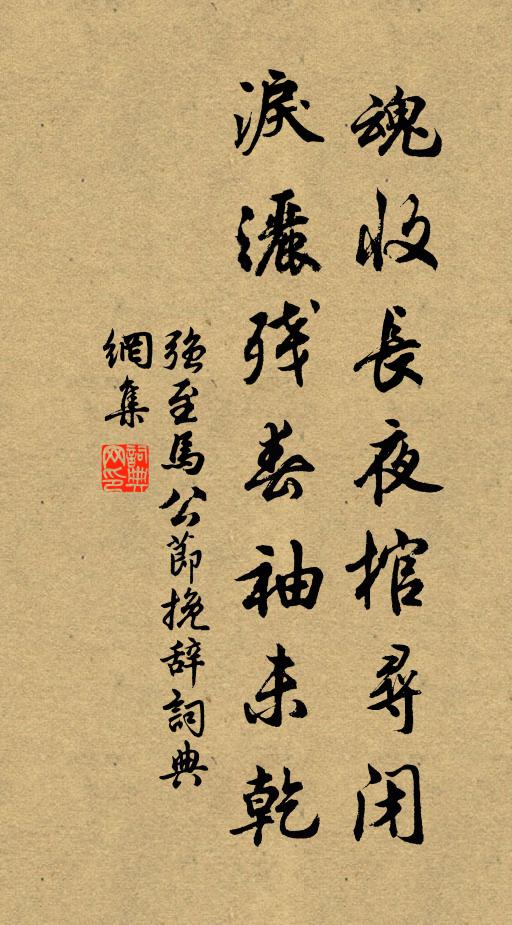 魂收長夜棺尋闭
淚灑残春袖未乾
强至馬公節挽辞詞典
網集
詞典
网印